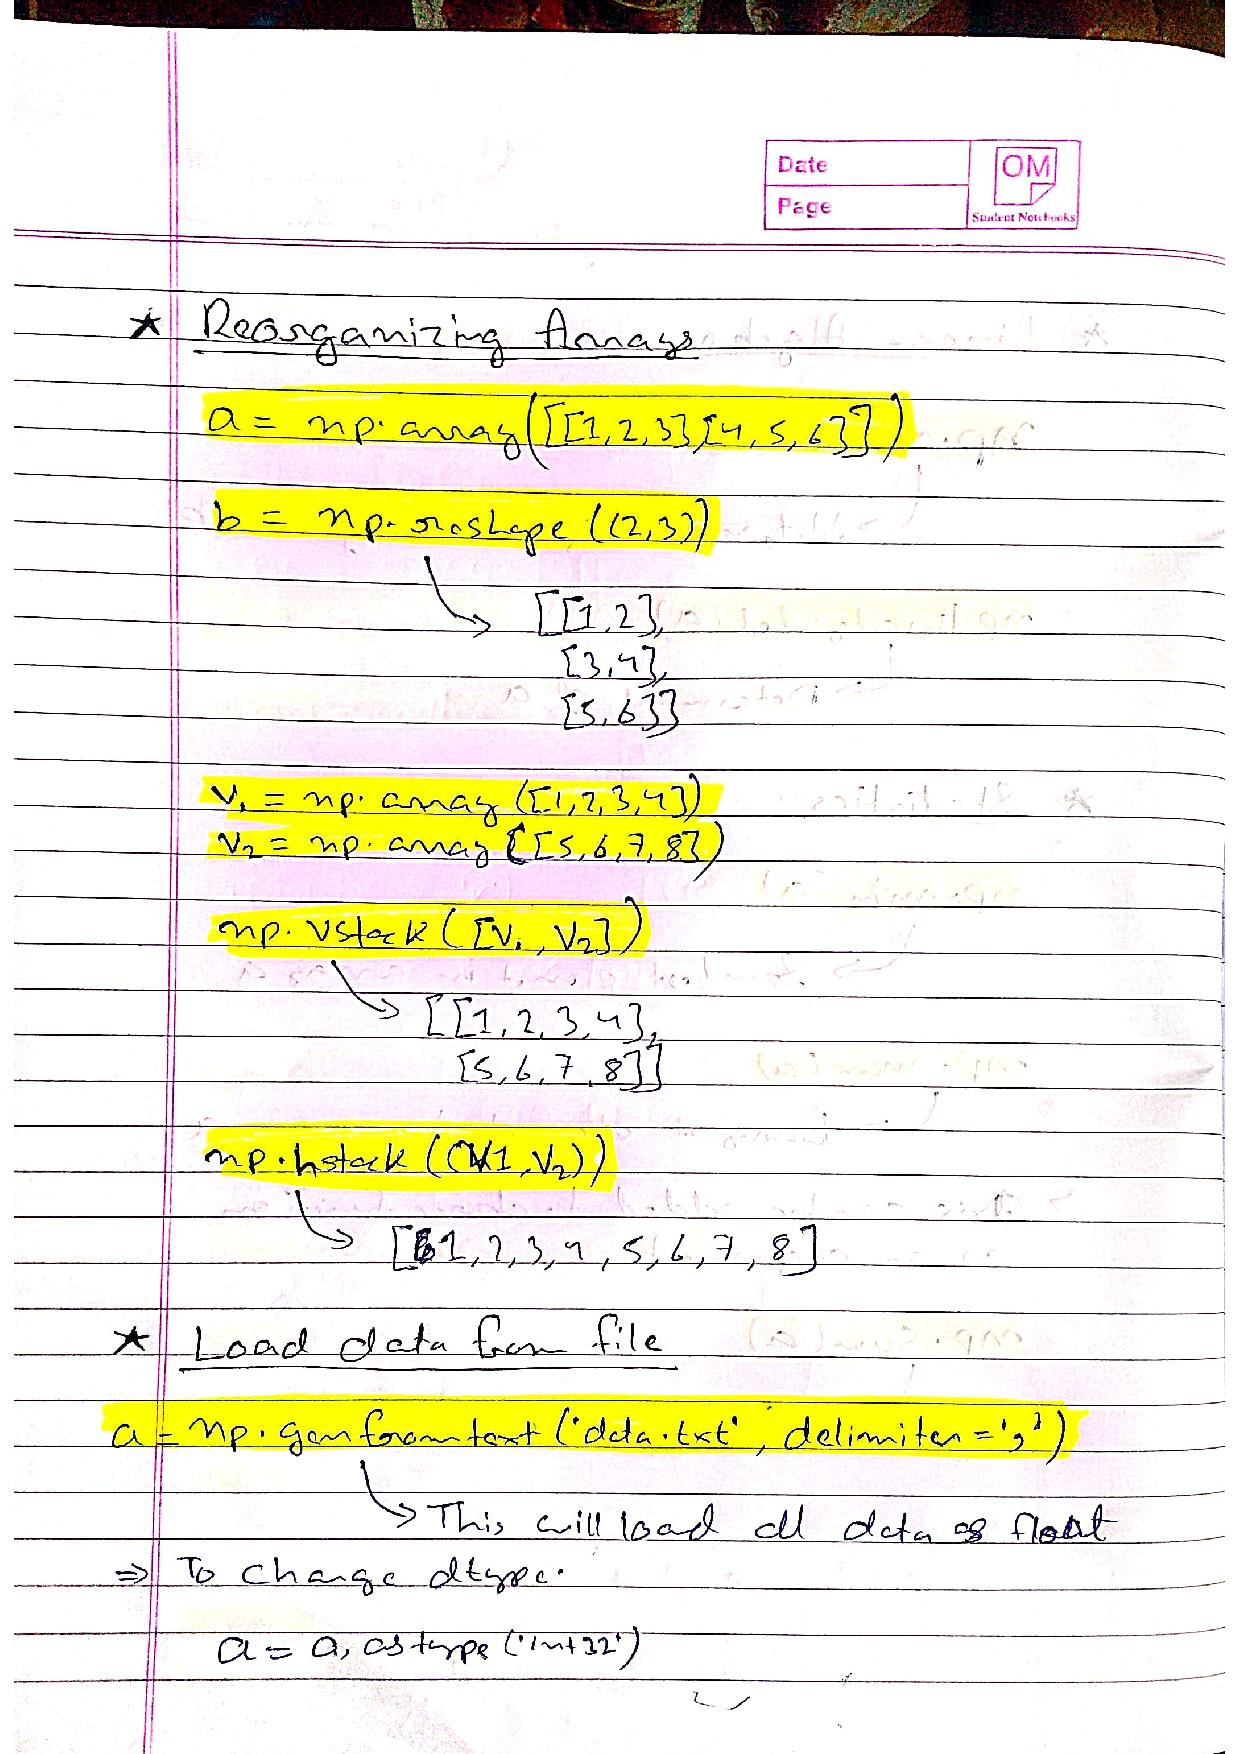 Date
OM
Page
Student Notebooks
★ Reorganizing Arrays
a = np.array([[1,2,3],[4,5,6]])
b = np.reshape((2,3))
[[1,2],
[3,4],
[5,6]]
V₁ = np.array([1,2,3,4])
V₂ = np.array([5,6,7,8])
np.vstack([V₁,V₂])
[[1,2,3,4],
[5,6,7,8]]
np.hstack((V1,V₂))
[1,2,3,4,5,6,7,8]
★ Load data from file
a = np.genfromtext('data.txt', delimiter=',')
This will load all data as float
⇒ To change dtype.
a = a.astype('int32')